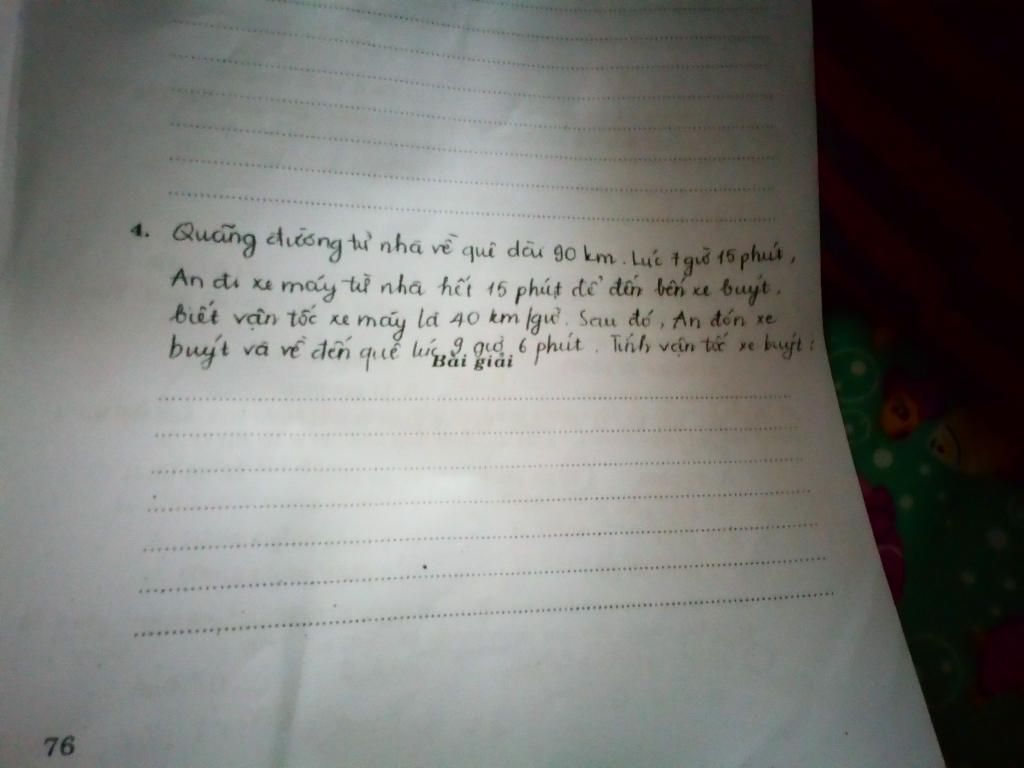 4. Quãng đường từ nhà về quê dài 90 km. Lúc 7 giờ 15 phút,
An đi xe máy từ nhà hết 15 phút để đến bến xe buýt.
biết vận tốc xe máy là 40 km/giờ. Sau đó, An đón xe
buýt và về đến quê lúc 9 giờ 6 phút. Tính vận tốc xe buýt?
Bài giải
76